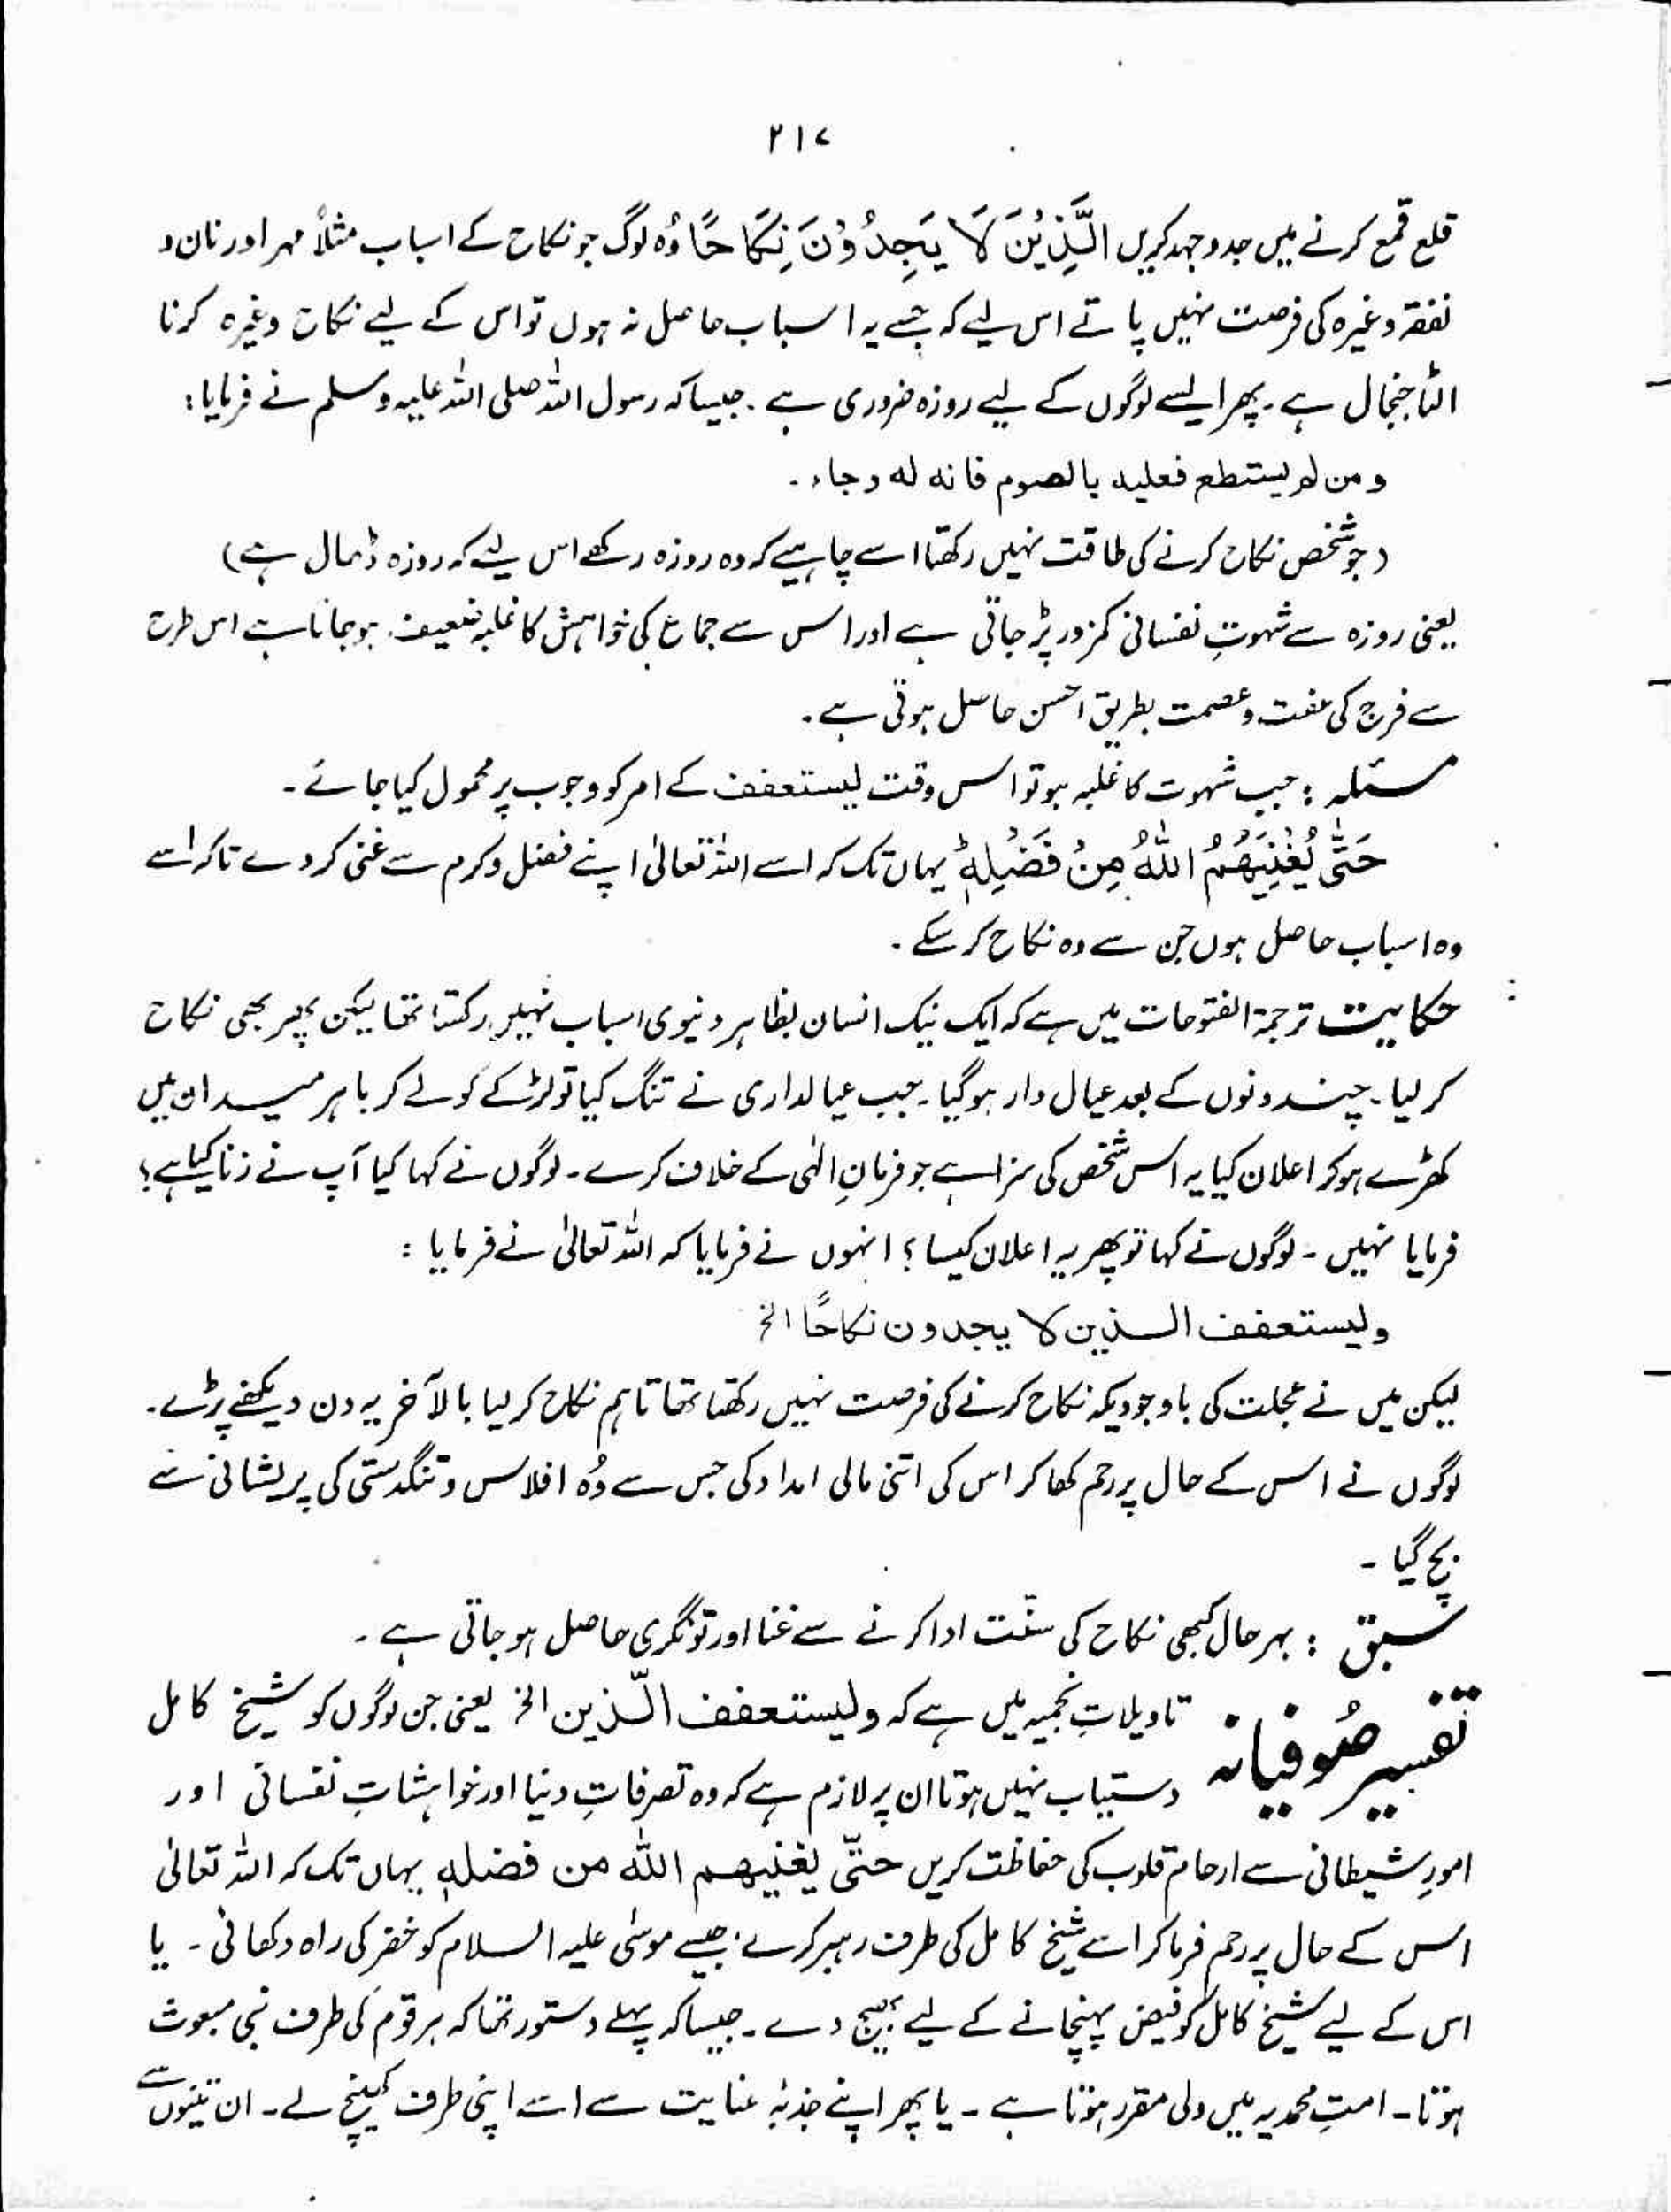 ۲۱۷
قلع قمع کرنے میں جدوجہد کریں الَّذِیْنَ لَا یَجِدُوْنَ نِکَاحًا وُہ لوگ جو نکاح کے اسباب مثلاً مہر اور نان و
نفقہ وغیرہ کی فرصت نہیں پاتے اس لیے کہ جسے یہ اسباب حاصل نہ ہوں تو اس کے لیے نکاح وغیرہ کرنا
الٹا جنجال ہے۔ پھر ایسے لوگوں کے لیے روزہ ضروری ہے۔ جیسا کہ رسول اللہ صلی اللہ علیہ وسلم نے فرمایا:
ومن لم یستطع فعلیہ بالصوم فانہ لہ وجاء۔
(جو شخص نکاح کرنے کی طاقت نہیں رکھتا اسے چاہیے کہ وہ روزہ رکھے اس لیے کہ روزہ ڈھال ہے)
یعنی روزہ سے شہوتِ نفسانی کمزور پڑ جاتی ہے اور اس سے جماع کی خواہش کا غلبہ ضعیف ہو جاتا ہے اس طرح
سے فرج کی عفت و عصمت بطریق احسن حاصل ہوتی ہے۔
مسئلہ : جب شہوت کا غلبہ ہو تو اس وقت لیستعفف کے امر کو وجوب پر محمول کیا جائے۔
حَتّٰی یُغْنِیَھُمُ اللّٰہُ مِنْ فَضْلِہٖ یہاں تک کہ اسے اللہ تعالیٰ اپنے فضل و کرم سے غنی کر دے تاکہ اسے
وہ اسباب حاصل ہوں جن سے وہ نکاح کر سکے۔
حکایت ترجمۃ الفتوحات میں ہے کہ ایک نیک انسان بظاہر دنیوی اسباب نہیں رکھتا تھا لیکن پھر بھی نکاح
کر لیا۔ چند دنوں کے بعد عیال دار ہو گیا۔ جب عیالداری نے تنگ کیا تو لڑکے کو لے کر باہر میدان میں
کھڑے ہو کر اعلان کیا یہ اس شخص کی سزا ہے جو فرمانِ الٰہی کے خلاف کرے۔ لوگوں نے کہا کیا آپ نے زنا کیا ہے؟
فرمایا نہیں۔ لوگوں نے کہا تو پھر یہ اعلان کیسا؟ انہوں نے فرمایا کہ اللہ تعالیٰ نے فرمایا :
ولیستعفف الذین لا یجدون نکاحًا الخ
لیکن میں نے عجلت کی باوجودیکہ نکاح کرنے کی فرصت نہیں رکھتا تھا تاہم نکاح کر لیا بالآخر یہ دن دیکھنے پڑے۔
لوگوں نے اس کے حال پر رحم کھا کر اس کی اتنی مالی امداد کی جس سے وُہ افلاس و تنگدستی کی پریشانی سے
بچ گیا۔
سبق : بہرحال کبھی نکاح کی سنّت ادا کرنے سے غنا اور تونگری حاصل ہو جاتی ہے۔
تفسیر صُوفیانہ تاویلاتِ نجمیہ میں ہے کہ ولیستعفف الّذین الخ یعنی جن لوگوں کو شیخ کامل
دستیاب نہیں ہوتا ان پر لازم ہے کہ وہ تصرفاتِ دنیا اور خواہشاتِ نفسانی اور
امورِ شیطانی سے ارحام قلوب کی حفاظت کریں حتّٰی یغنیھم اللّٰہ من فضلہٖ یہاں تک کہ اللہ تعالیٰ
اس کے حال پر رحم فرما کر اسے شیخ کامل کی طرف رہبر کرے، جیسے موسٰی علیہ السلام کو خضر کی راہ دکھائی۔ یا
اس کے لیے شیخ کامل کو فیض پہنچانے کے لیے بھیج دے۔ جیسا کہ پہلے دستور تھا کہ ہر قوم کی طرف نبی مبعوث
ہوتا۔ امتِ محمدیہ میں ولی مقرر ہوتا ہے۔ یا پھر اپنے جذبۂ عنایت سے اسے اپنی طرف کھینچ لے۔ ان تینوں سے